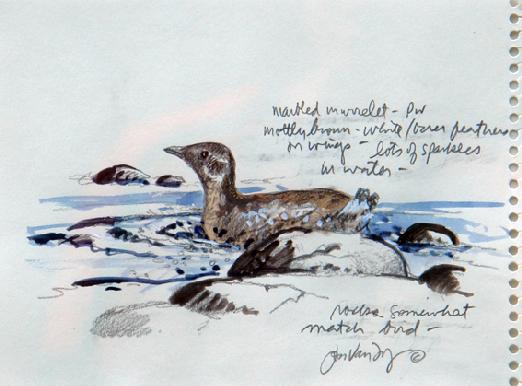 marbled murrelet -
mottly brown - white / bases feathers
on wings - lots of sparkles
in water -
rocks somewhat
match bird -
©